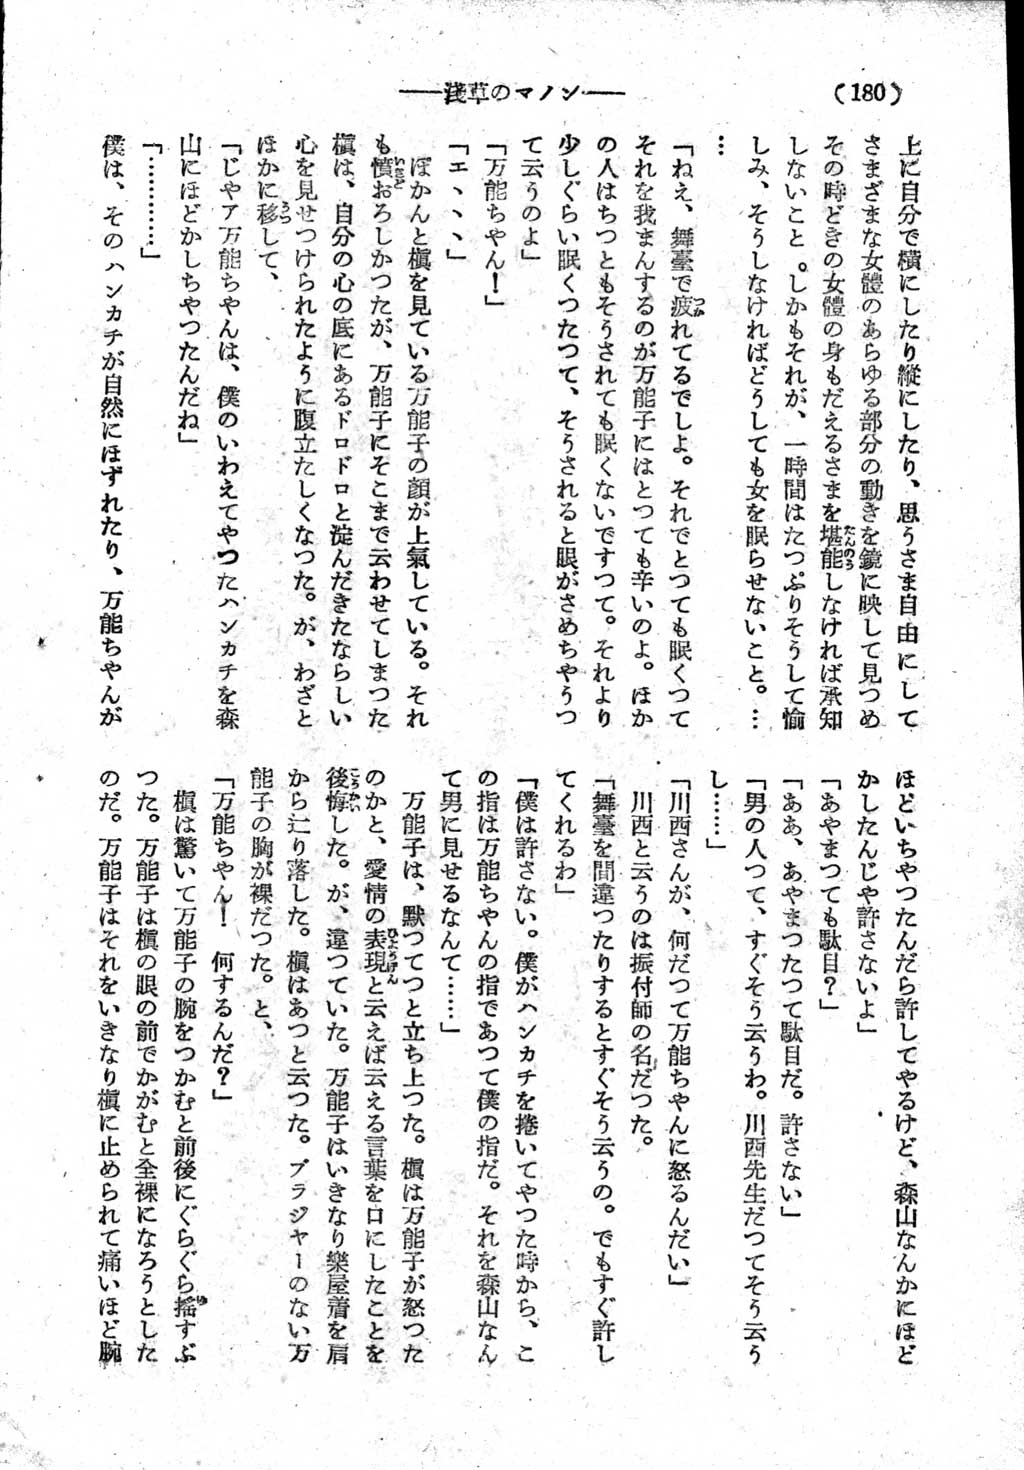 (180)
――淺草のマノン――
上に自分で橫にしたり縱にしたり、思うさま自由にして
さまざまな女體のあらゆる部分の動きを鏡に映して見つめ
その時どきの女體の身もだえるさまを堪能しなければ承知
しないこと。しかもそれが、一時間はたつぷりそうして愉
しみ、そうしなければどうしても女を眠らせないこと。…
…
「ねえ、舞臺で疲れてるでしよ。それでとつても眠くつて
それを我まんするのが万能子にはとつても辛いのよ。ほか
の人はちつともそうされても眠くないですつて。それより
少しぐらい眠くつたつて、そうされると眼がさめちやうつ
て云うのよ」
「万能ちやん！」
「エヽヽヽ」
ぽかんと槇を見ている万能子の顏が上氣している。それ
も憤おろしかつたが、万能子にそこまで云わせてしまつた
槇は、自分の心の底にあるドロドロと淀んだきたならしい
心を見せつけられたように腹立たしくなつた。が、わざと
ほかに移して、
「じやア万能ちやんは、僕のいわえてやつたハンカチを森
山にほどかしちやつたんだね」
「…………」
僕は、そのハンカチが自然にほずれたり、万能ちやんが
ほどいちやつたんだら許してやるけど、森山なんかにほど
かしたんじや許さないよ」
「あやまつても駄目？」
「ああ、あやまつたつて駄目だ。許さない」
「男の人つて、すぐそう云うわ。川西先生だつてそう云う
し……」
「川西さんが、何だつて万能ちやんに怒るんだい」
川西と云うのは振付師の名だつた。
「舞臺を間違つたりするとすぐそう云うの。でもすぐ許し
てくれるわ」
「僕は許さない。僕がハンカチを捲いてやつた時から、こ
の指は万能ちやんの指であつて僕の指だ。それを森山なん
て男に見せるなんて……」
万能子は、默つてつと立ち上つた。槇は万能子が怒つた
のかと、愛情の表現と云えば云える言葉を口にしたことを
後悔した。が、違つていた。万能子はいきなり樂屋着を肩
から辷り落した。槇はあつと云つた。ブラジヤーのない万
能子の胸が裸だつた。と、
「万能ちやん！　何するんだ？」
槇は驚いて万能子の腕をつかむと前後にぐらぐら搖すぶ
つた。万能子は槇の眼の前でかがむと全裸になろうとした
のだ。万能子はそれをいきなり槇に止められて痛いほど腕